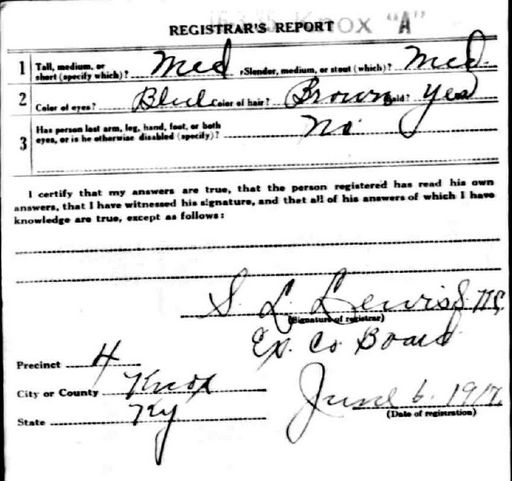 KNOX "A"
REGISTRAR'S REPORT
1 Tall, medium, or short (specify which)? Med Slender, medium, or stout (which)? Med
2 Color of eyes? Blue Color of hair? Brown Bald? Yes
3 Has person lost arm, leg, hand, foot, or both eyes, or is he otherwise disabled (specify)? No
I certify that my answers are true, that the person registered has read his own
answers, that I have witnessed his signature, and that all of his answers of which I have
knowledge are true, except as follows:
S. L. Lewis
(Signature of registrar)
Ex. Co Board
Precinct 4
City or County Knox
State Ky
June 6. 1917.
(Date of registration)